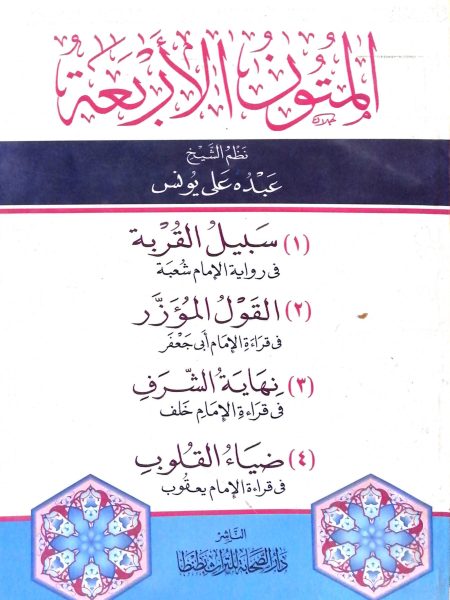 المتون الأربعة
نظم الشيخ
عبده على يونس
(١) سبيل القُرْبة
فى رواية الإمام شعبة
(٢) القَوْلُ المؤَزَّر
فى قراءة الإمام أبى جَعْفَر
(٣) نِهاية الشّرَفِ
فى قراءة الإمام خلف
(٤) ضياء القلوب
فى قراءة الإمام يعقوب
الناشر
دار الصحابة للتراث بطنطا